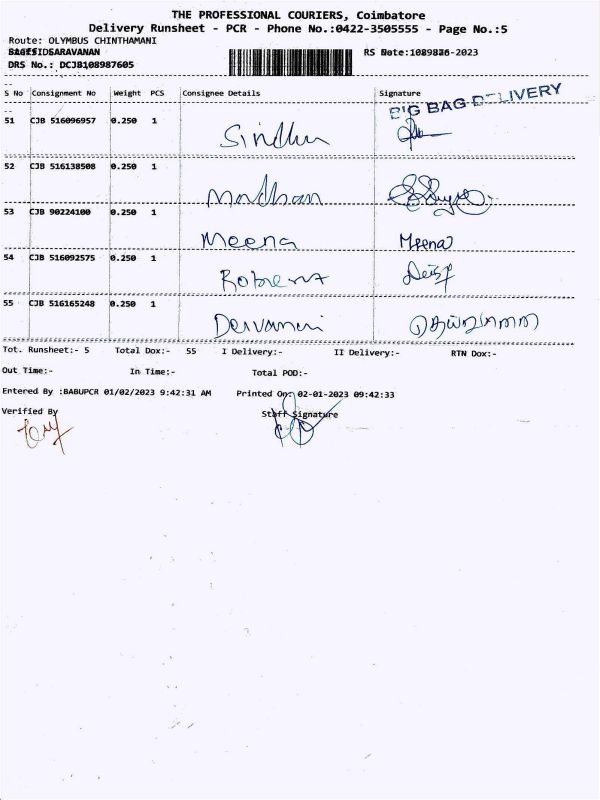 THE PROFESSIONAL COURIERS, Coimbatore
Delivery Runsheet - PCR - Phone No.:0422-3505555 - Page No.:5
Route: OLYMBUS CHINTHAMANI
RS Date:
DRS No.: DCJB108987605
S No Consignment No Weight PCS Consignee Details Signature
BIG BAG DELIVERY
51 CJB 516096957 0.250 1 Sindhu
52 CJB 516138508 0.250 1 Madhan
53 CJB 90224100 0.250 1 Meena Meena
54 CJB 516092575 0.250 1
55 CJB 516165248 0.250 1
Tot. Runsheet:- 5 Total Dox:- 55 I Delivery:- II Delivery:- RTN Dox:-
Out Time:- In Time:- Total POD:-
Entered By :BABUPCR 01/02/2023 9:42:31 AM Printed On: 02-01-2023 09:42:33
Verified By Staff Signature